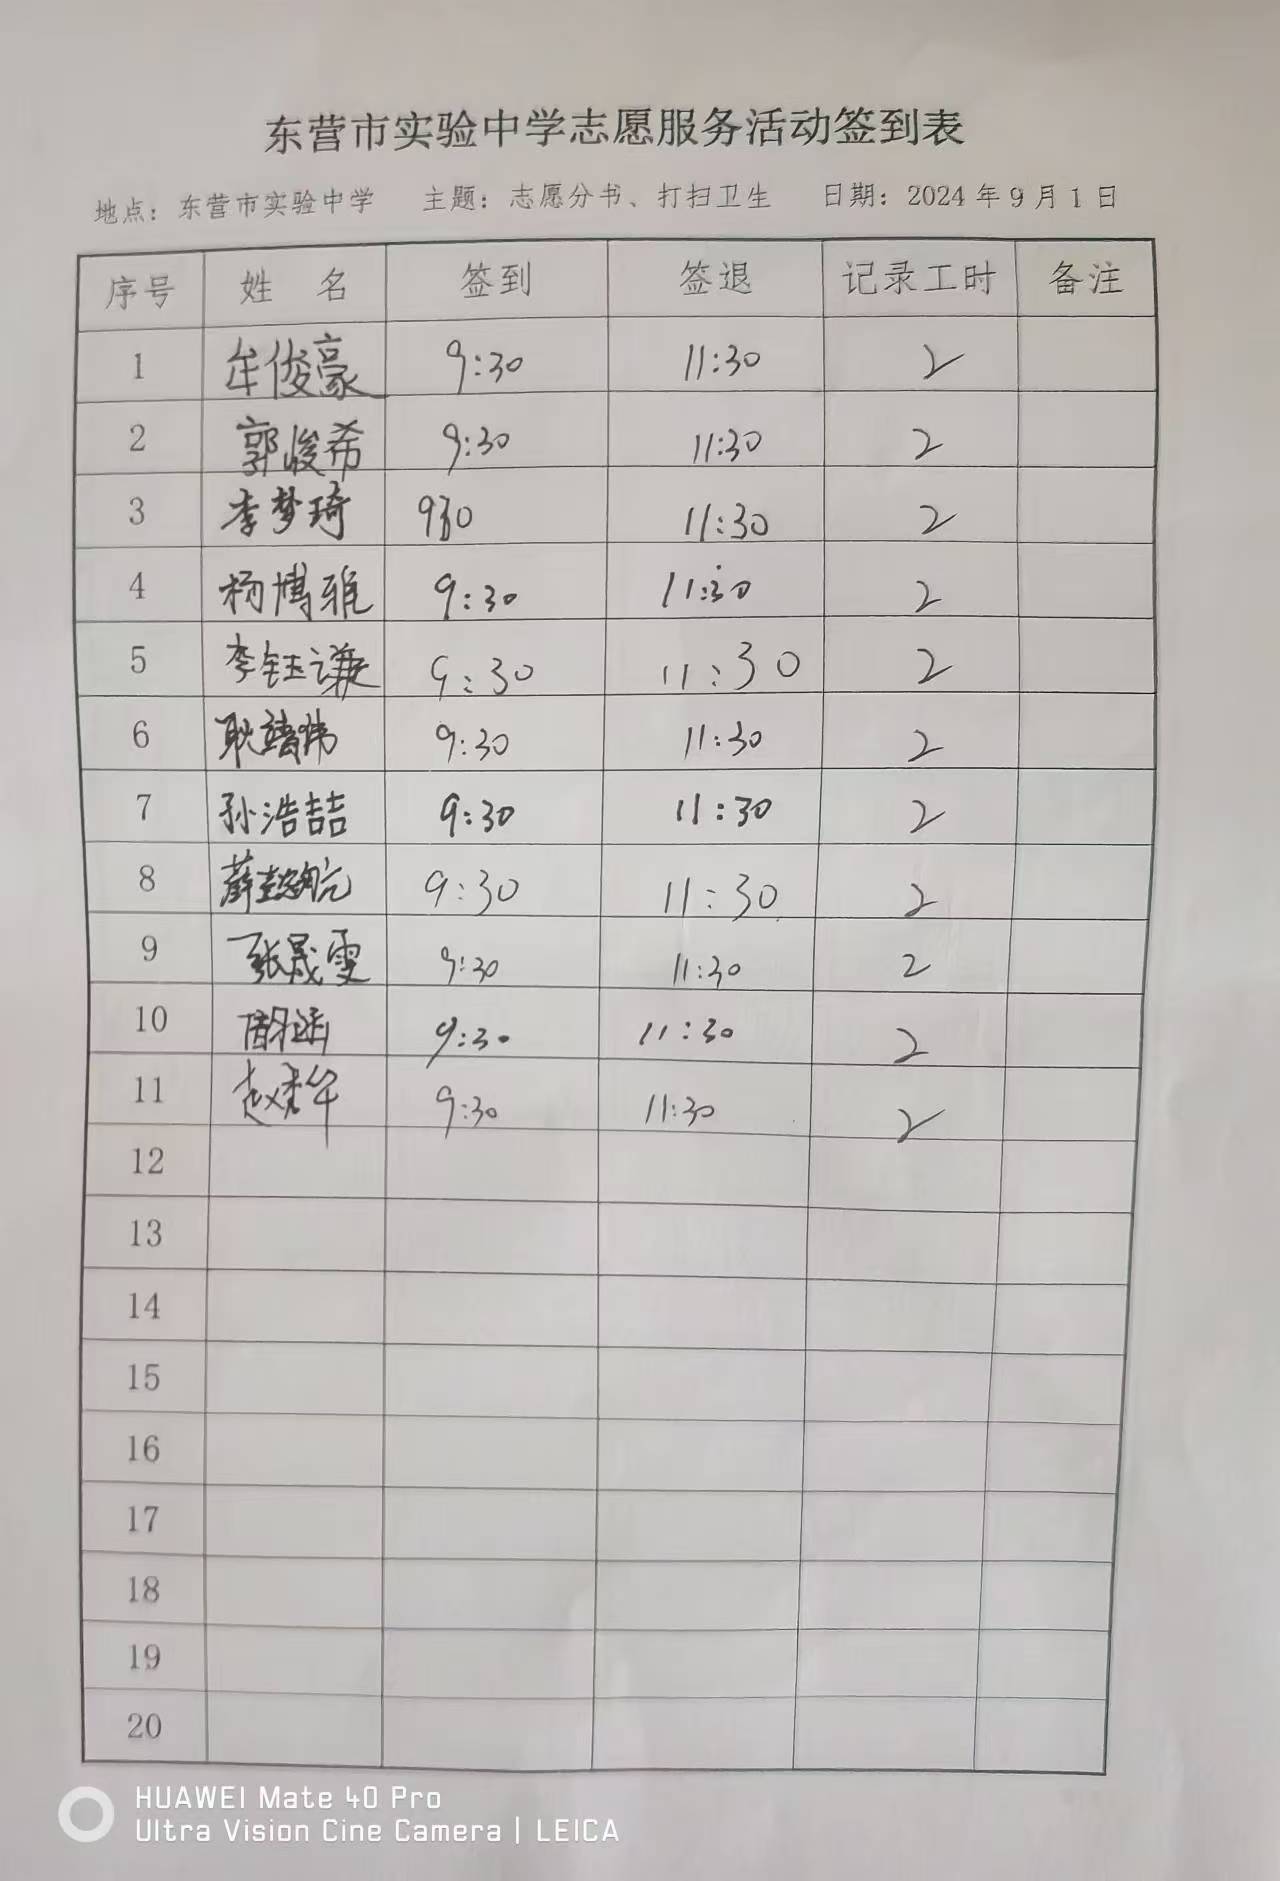 东营市实验中学志愿服务活动签到表
地点：东营市实验中学 主题：志愿分书、打扫卫生 日期：2024年9月1日
序号 姓名 签到 签退 记录工时 备注
1 牟俊豪 9:30 11:30 2
2 郭峻希 9:30 11:30 2
3 李梦琦 930 11:30 2
4 杨博雅 9:30 11:30 2
5 李钰谦 9:30 11:30 2
6 耿靖 9:30 11:30 2
7 孙浩喆 9:30 11:30 2
8 薛懿航 9:30 11:30 2
9 张晟雯 9:30 11:30 2
10 9:30 11:30 2
11 赵 9:30 11:30 2
12
13
14
15
16
17
18
19
20
HUAWEI Mate 40 Pro
Ultra Vision Cine Camera | LEICA